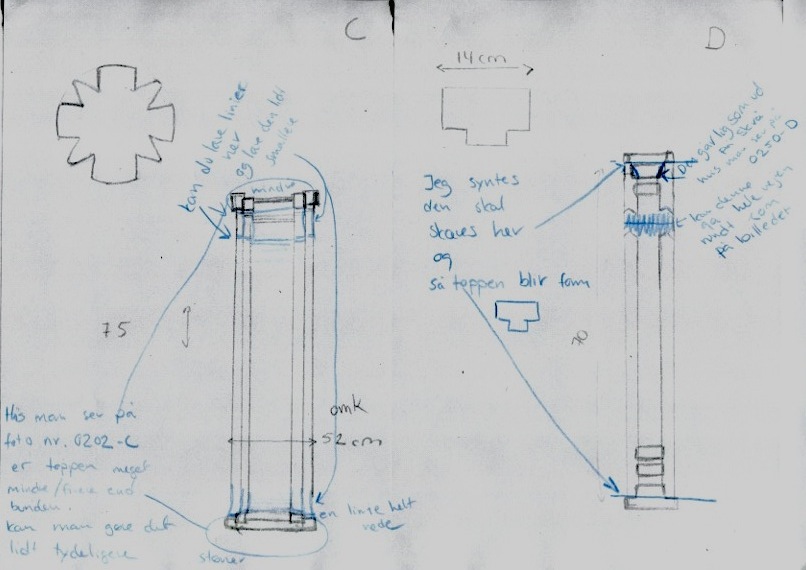 C
kan du lave linier
her
og lave den lidt
smallere
mindre
75
omk
52 cm
foto nr. 0202-C
er toppen meget
mindre/
bunden.
kan man gøre det
lidt tydeligere
en linie helt
nede
D
14 cm
Jeg syntes
den skal
skæres her
og
så toppen blir form
hvis man ser på
0250-D
kan denne
gå hele vejen
rundt som
på billedet
70